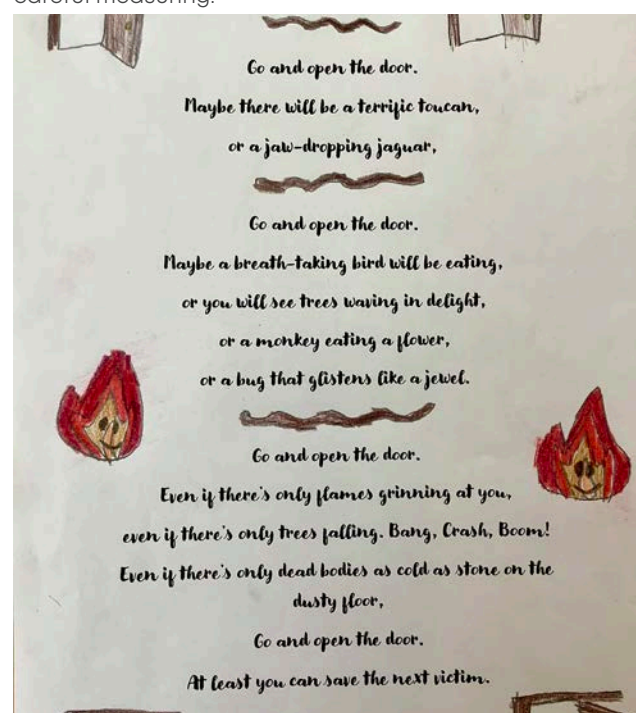 careful measuring.
Go and open the door.
Maybe there will be a terrific toucan,
or a jaw-dropping jaguar,
Go and open the door.
Maybe a breath-taking bird will be eating,
or you will see trees waving in delight,
or a monkey eating a flower,
or a bug that glistens like a jewel.
Go and open the door.
Even if there's only flames grinning at you,
even if there's only trees falling. Bang, Crash, Boom!
Even if there's only dead bodies as cold as stone on the
dusty floor,
Go and open the door.
At least you can save the next victim.